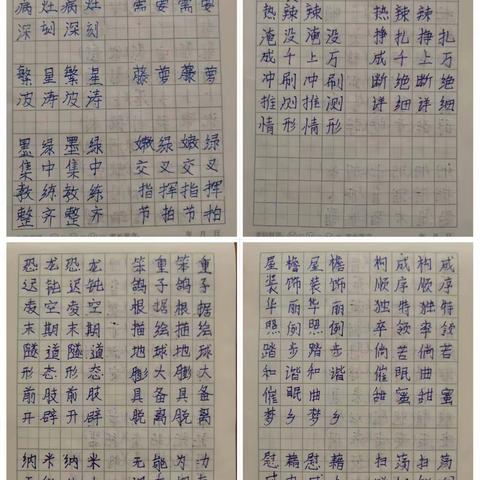 病灶病灶 需要需要
深刻深刻
繁星繁星 藤萝藤萝
波涛波涛
墨绿墨绿 嫩绿嫩绿
集中集中 交叉交叉
教练教练 指挥指挥
整齐整齐 节拍节拍
年 月 日
热辣辣 热辣辣
淹没淹没 挣扎挣扎
成千上万 成千上万
冲刷冲刷 断绝断绝
推测推测 详细详细
情形情形
年 月 日
恐龙恐龙 笨重笨重
迟钝迟钝 鸽子鸽子
凌空凌空 根据根据
末期末期 描绘描绘
隧道隧道 地球地球
形态形态 膨大膨大
前肢前肢 具备具备
开辟开辟 脱离脱离
纳米纳米 无能为力
屋檐屋檐 构成构成
装饰装饰 顺序顺序
华丽华丽 独特独特
照例照例 率领率领
踏步踏步 倘若倘若
和谐和谐 催眠曲
催眠曲 甜蜜甜蜜
梦乡梦乡
慰藉慰藉 扫荡扫荡